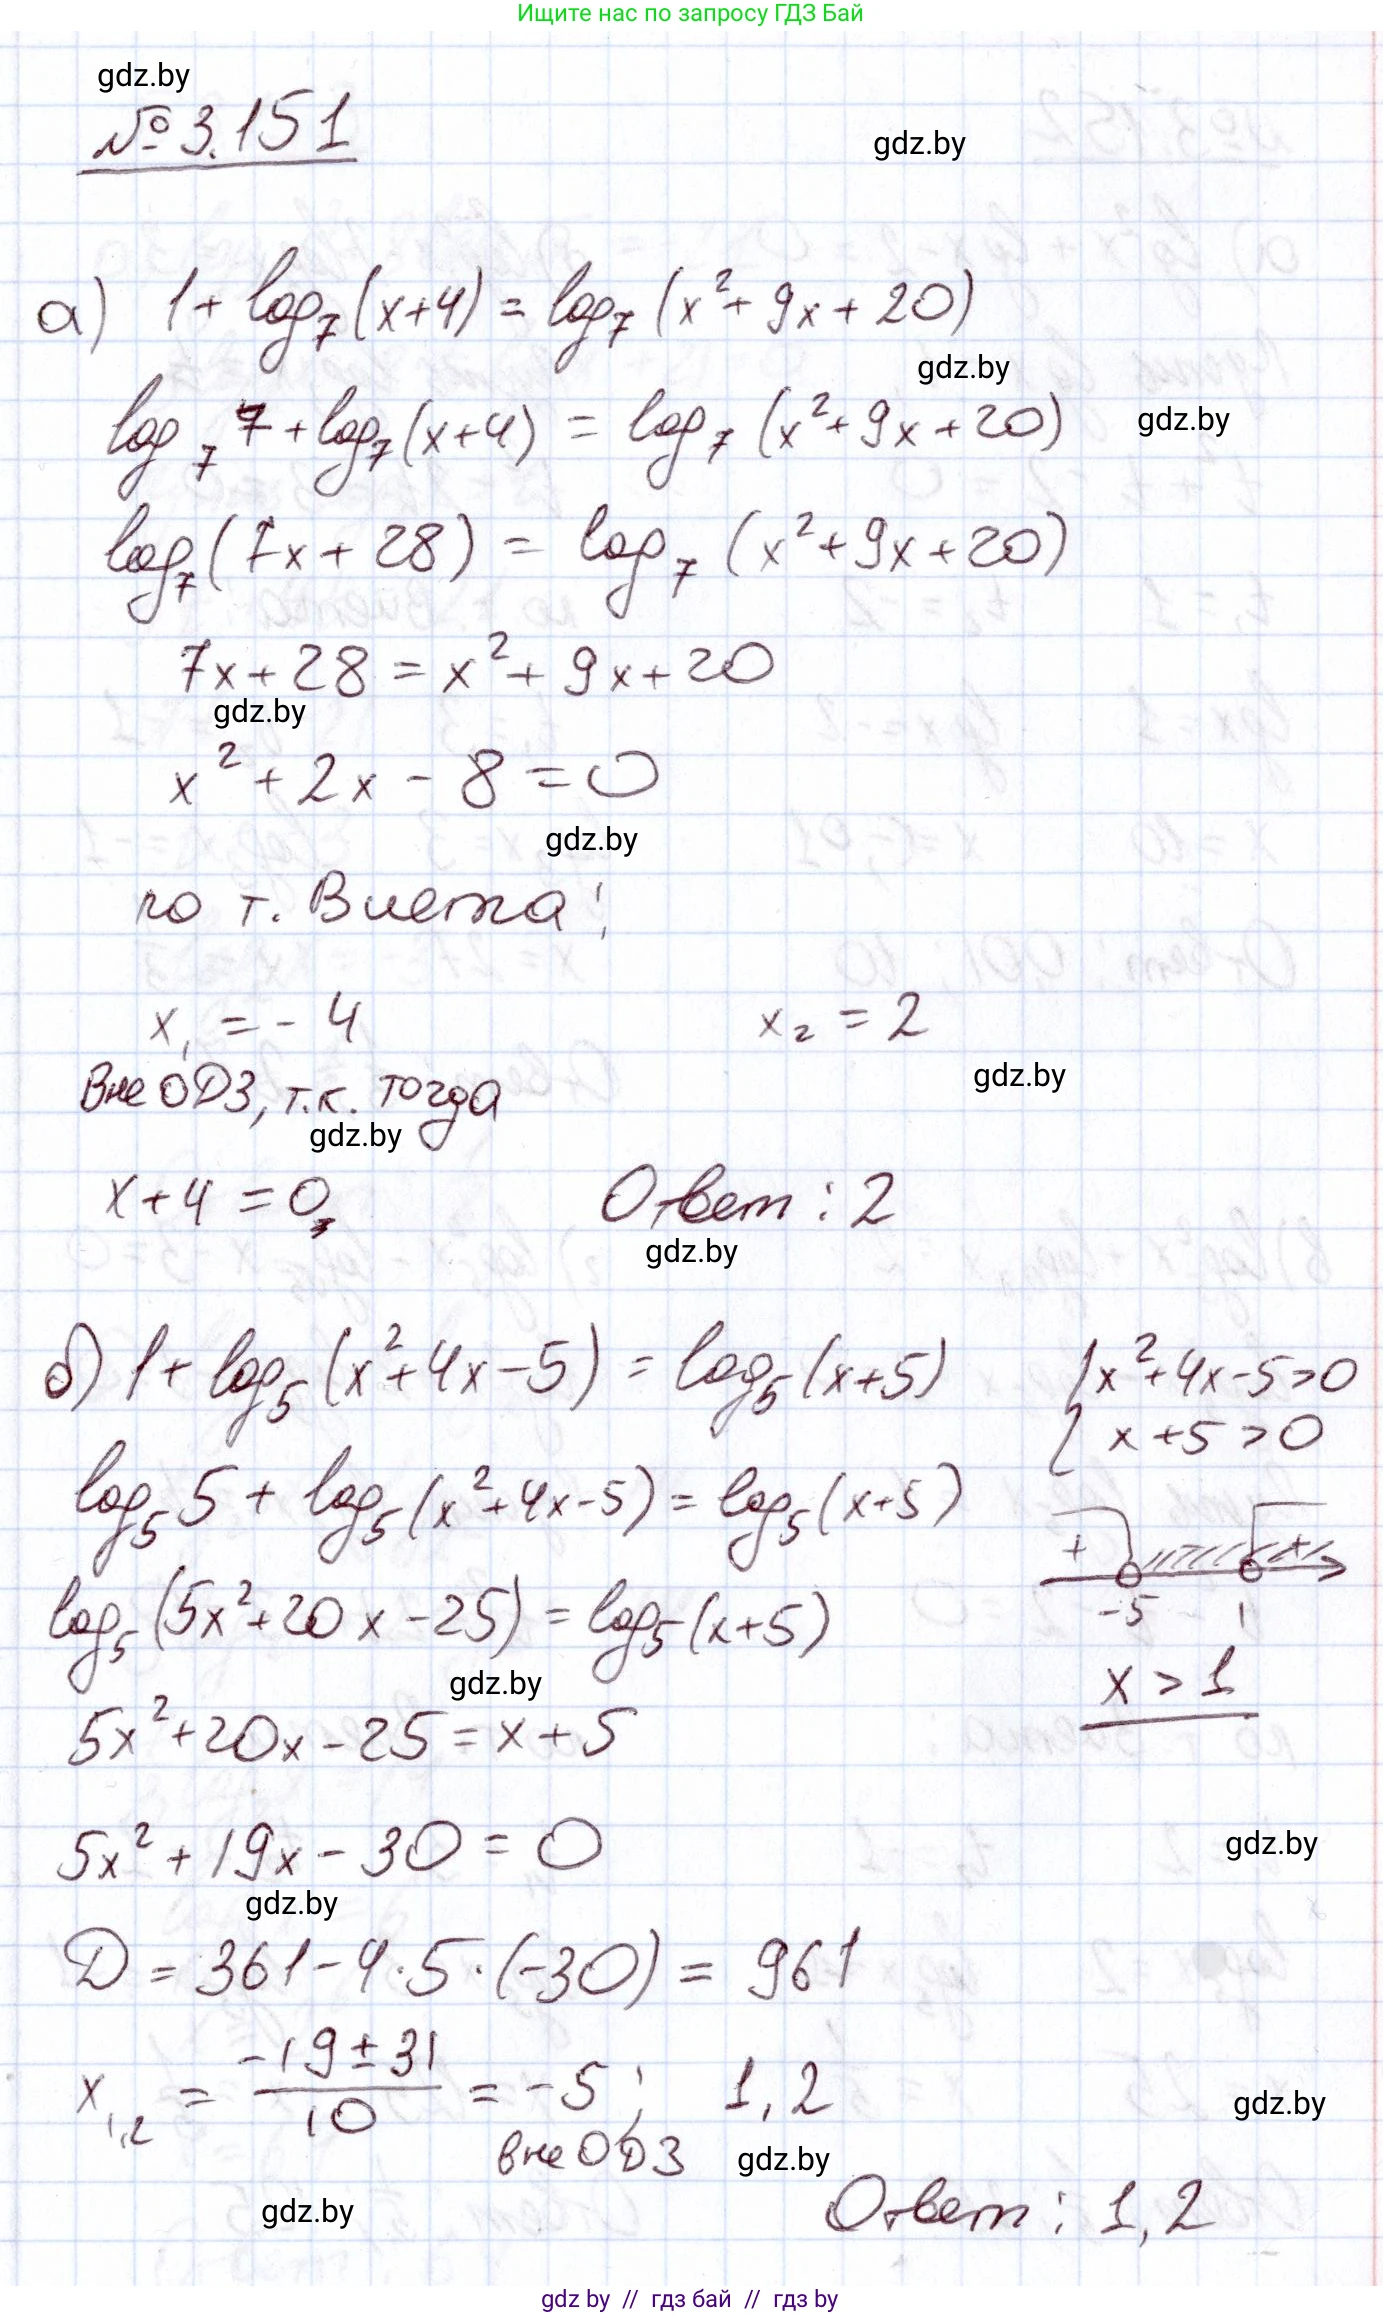 Ищите нас по запросу ГДЗ Бай
gdz.by
№ 3.151
gdz.by
а) 1 + log₇(x+4) = log₇(x² + 9x + 20)
gdz.by
log₇7 + log₇(x+4) = log₇(x² + 9x + 20)
gdz.by
log₇(7x + 28) = log₇(x² + 9x + 20)
7x + 28 = x² + 9x + 20
gdz.by
x² + 2x - 8 = 0
gdz.by
по т. Виета:
x₁ = - 4 x₂ = 2
gdz.by
Вне ОДЗ, т.к. тогда
gdz.by
x + 4 = 0, Ответ: 2
gdz.by
б) 1 + log₅(x² + 4x - 5) = log₅(x+5) { x² + 4x - 5 > 0
x + 5 > 0
log₅5 + log₅(x² + 4x - 5) = log₅(x+5)
+ +
-5 1
log₅(5x² + 20x - 25) = log₅(x+5)
x > 1
gdz.by
5x² + 20x - 25 = x + 5
5x² + 19x - 30 = 0
gdz.by
gdz.by
D = 361 - 4·5·(-30) = 961
x₁,₂ = (-19 ± 31)/10 = -5; 1,2
gdz.by
вне ОДЗ
gdz.by
gdz.by
Ответ: 1,2
gdz by // гдз бай // гдз by